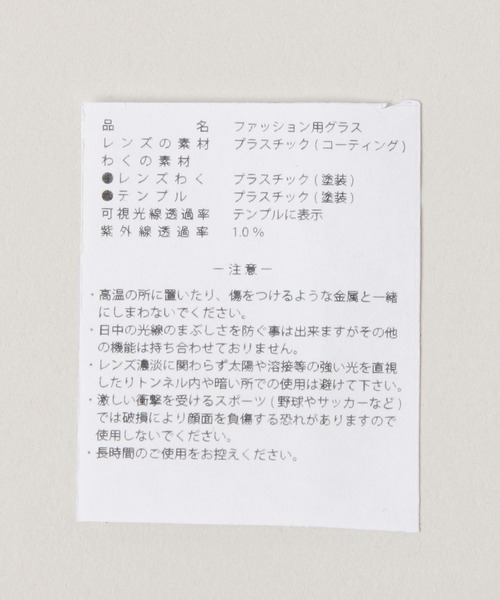 品名 ファッション用グラス
レンズの素材 プラスチック(コーティング)
わくの素材
●レンズわく プラスチック(塗装)
●テンプル プラスチック(塗装)
可視光線透過率 テンプルに表示
紫外線透過率 1.0%
－注意－
・高温の所に置いたり、傷をつけるような金属と一緒
にしまわないでください。
・日中の光線のまぶしさを防ぐ事は出来ますがその他
の機能は持ち合わせておりません。
・レンズ濃淡に関わらず太陽や溶接等の強い光を直視
したりトンネル内や暗い所での使用は避けて下さい。
・激しい衝撃を受けるスポーツ(野球やサッカーなど)
では破損により顔面を負傷する恐れがありますので
使用しないでください。
・長時間のご使用をお控えください。